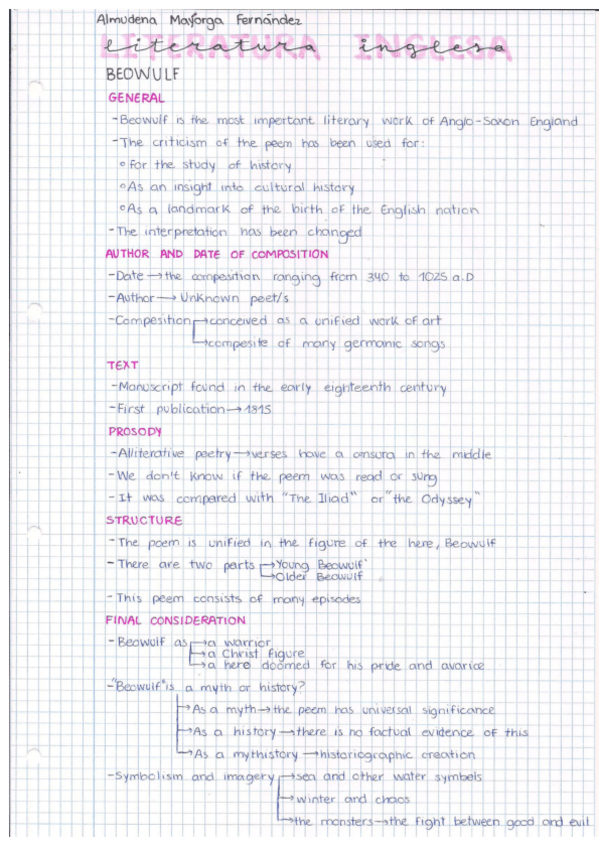 Almudena Mayorga Fernández
literatura inglesa
BEOWULF
GENERAL
-Beowulf is the most important literary work of Anglo-Saxon England
-The criticism of the poem has been used for:
°For the study of history
°As an insight into cultural history
°As a landmark of the birth of the English nation
-The interpretation has been changed
AUTHOR AND DATE OF COMPOSITION
-Date→the composition ranging from 340 to 1025 a.D
-Author→Unknown poet/s
-Composition→conceived as a unified work of art
→composite of many germanic songs
TEXT
-Manuscript found in the early eighteenth century
-First publication→1815
PROSODY
-Alliterative poetry→verses have a in the middle
-We don't know if the poem was read or sung
-It was compared with "The Iliad" or "the Odyssey"
STRUCTURE
-The poem is unified in the figure of the hero, Beowulf
-There are two parts→Young Beowulf
→Older Beowulf
-This poem consists of many episodes
FINAL CONSIDERATION
-Beowulf as→a warrior
→a Christ figure
→a hero doomed for his pride and avarice
-"Beowulf" is a myth or history?
→As a myth→the poem has universal significance
→As a history→there is no factual evidence of this
→As a mythistory→historiographic creation
-Symbolism and imagery→sea and other water symbols
→winter and chaos
→the monsters→the fight between good and evil